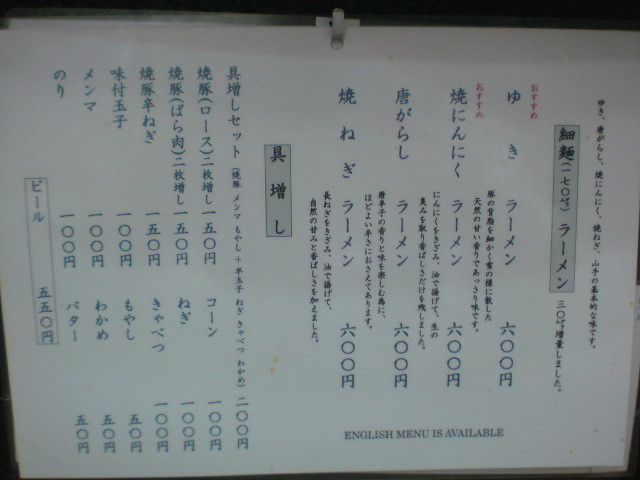 ゆき、唐がらし、焼にんにく、焼ねぎ、山手の基本的な味です。
細麺(一七〇㌘)ラーメン 三〇㌘増量しました。
おすすめ
ゆき ラーメン 六〇〇円
豚の背脂を細かく雪の様に散した
天然の甘い香りであっさり味です。
おすすめ
焼にんにく ラーメン 六〇〇円
にんにくをきざみ、油で揚げて、生の
臭みを取り香ばしさだけを残しました。
唐がらし ラーメン 六〇〇円
唐辛子の香りと味を楽しむ為に、
ほどよい辛さにおさえてあります。
焼ねぎ ラーメン 六〇〇円
長ねぎをきざみ、油で揚げて、
自然の甘みと香ばしさを加えました。
具増し
具増しセット(焼豚 メンマ もやし+半玉子 ねぎ きゃべつ わかめ) 二〇〇円
焼豚(ロース)二枚増し 一五〇円
コーン 一〇〇円
焼豚(ばら肉)二枚増し 一五〇円
ねぎ 一〇〇円
焼豚辛ねぎ 一五〇円
きゃべつ 一〇〇円
味付玉子 一〇〇円
もやし 五〇円
メンマ 一〇〇円
わかめ 五〇円
のり 一〇〇円
バター 五〇円
ビール 五五〇円
ENGLISH MENU IS AVAILABLE